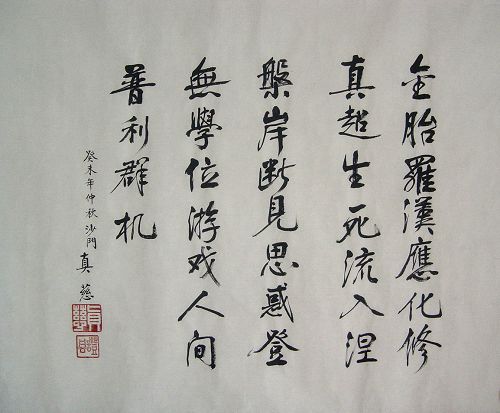 金胎羅漢應化修
真超生死流入涅
槃岸断見思惑登
無學位游戏人间
普利群机
癸未年仲秋沙門真慈